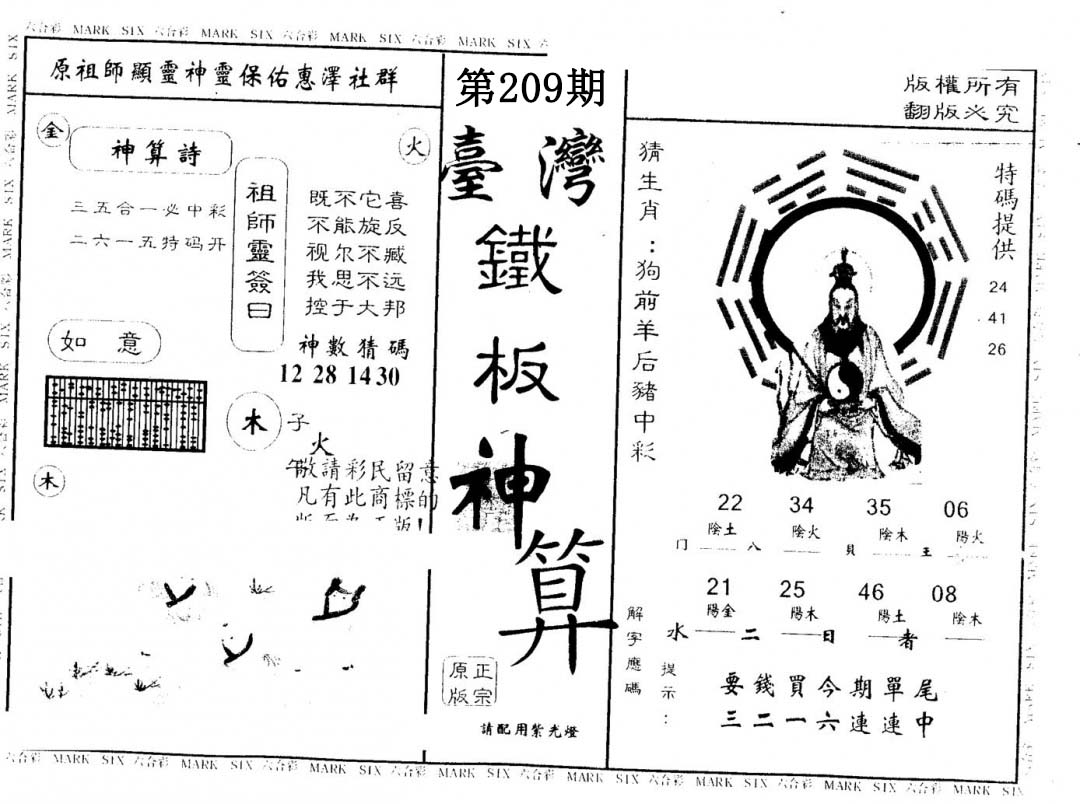 六合彩 MARK SIX 六合彩 MARK SIX 六合彩 MARK SIX 六合彩 MARK SIX
原祖師顯靈神靈保佑惠澤社群
金
神算詩
火
三五合一必中彩
二六一五特码开
祖師靈簽曰
既不它喜
不能旋反
视尔不臧
我思不远
控于大邦
如意
神數猜碼
12 28 14 30
木
子
火
午
敬請彩民留意
凡有此商標的
木
第209期
臺灣
鐵
板
神
算
正宗
原版
請配用紫光燈
版權所有
翻版必究
猜生肖：狗前羊后豬中彩
特碼提供
24
41
26
22 34 35 06
陰土 陰火 陰木 陽火
门 八 貝 王
21 25 46 08
陽金 陽木 陽土 陰木
水 二 日 者
解字應碼
提示：
要錢買今期單尾
三二一六連連中
六合彩 MARK SIX 六合彩 MARK SIX 六合彩 MARK SIX 六合彩 MARK SIX 六合彩 MARK SIX 六合彩 MARK SIX 六合彩 MARK SIX 六合彩 MARK SIX